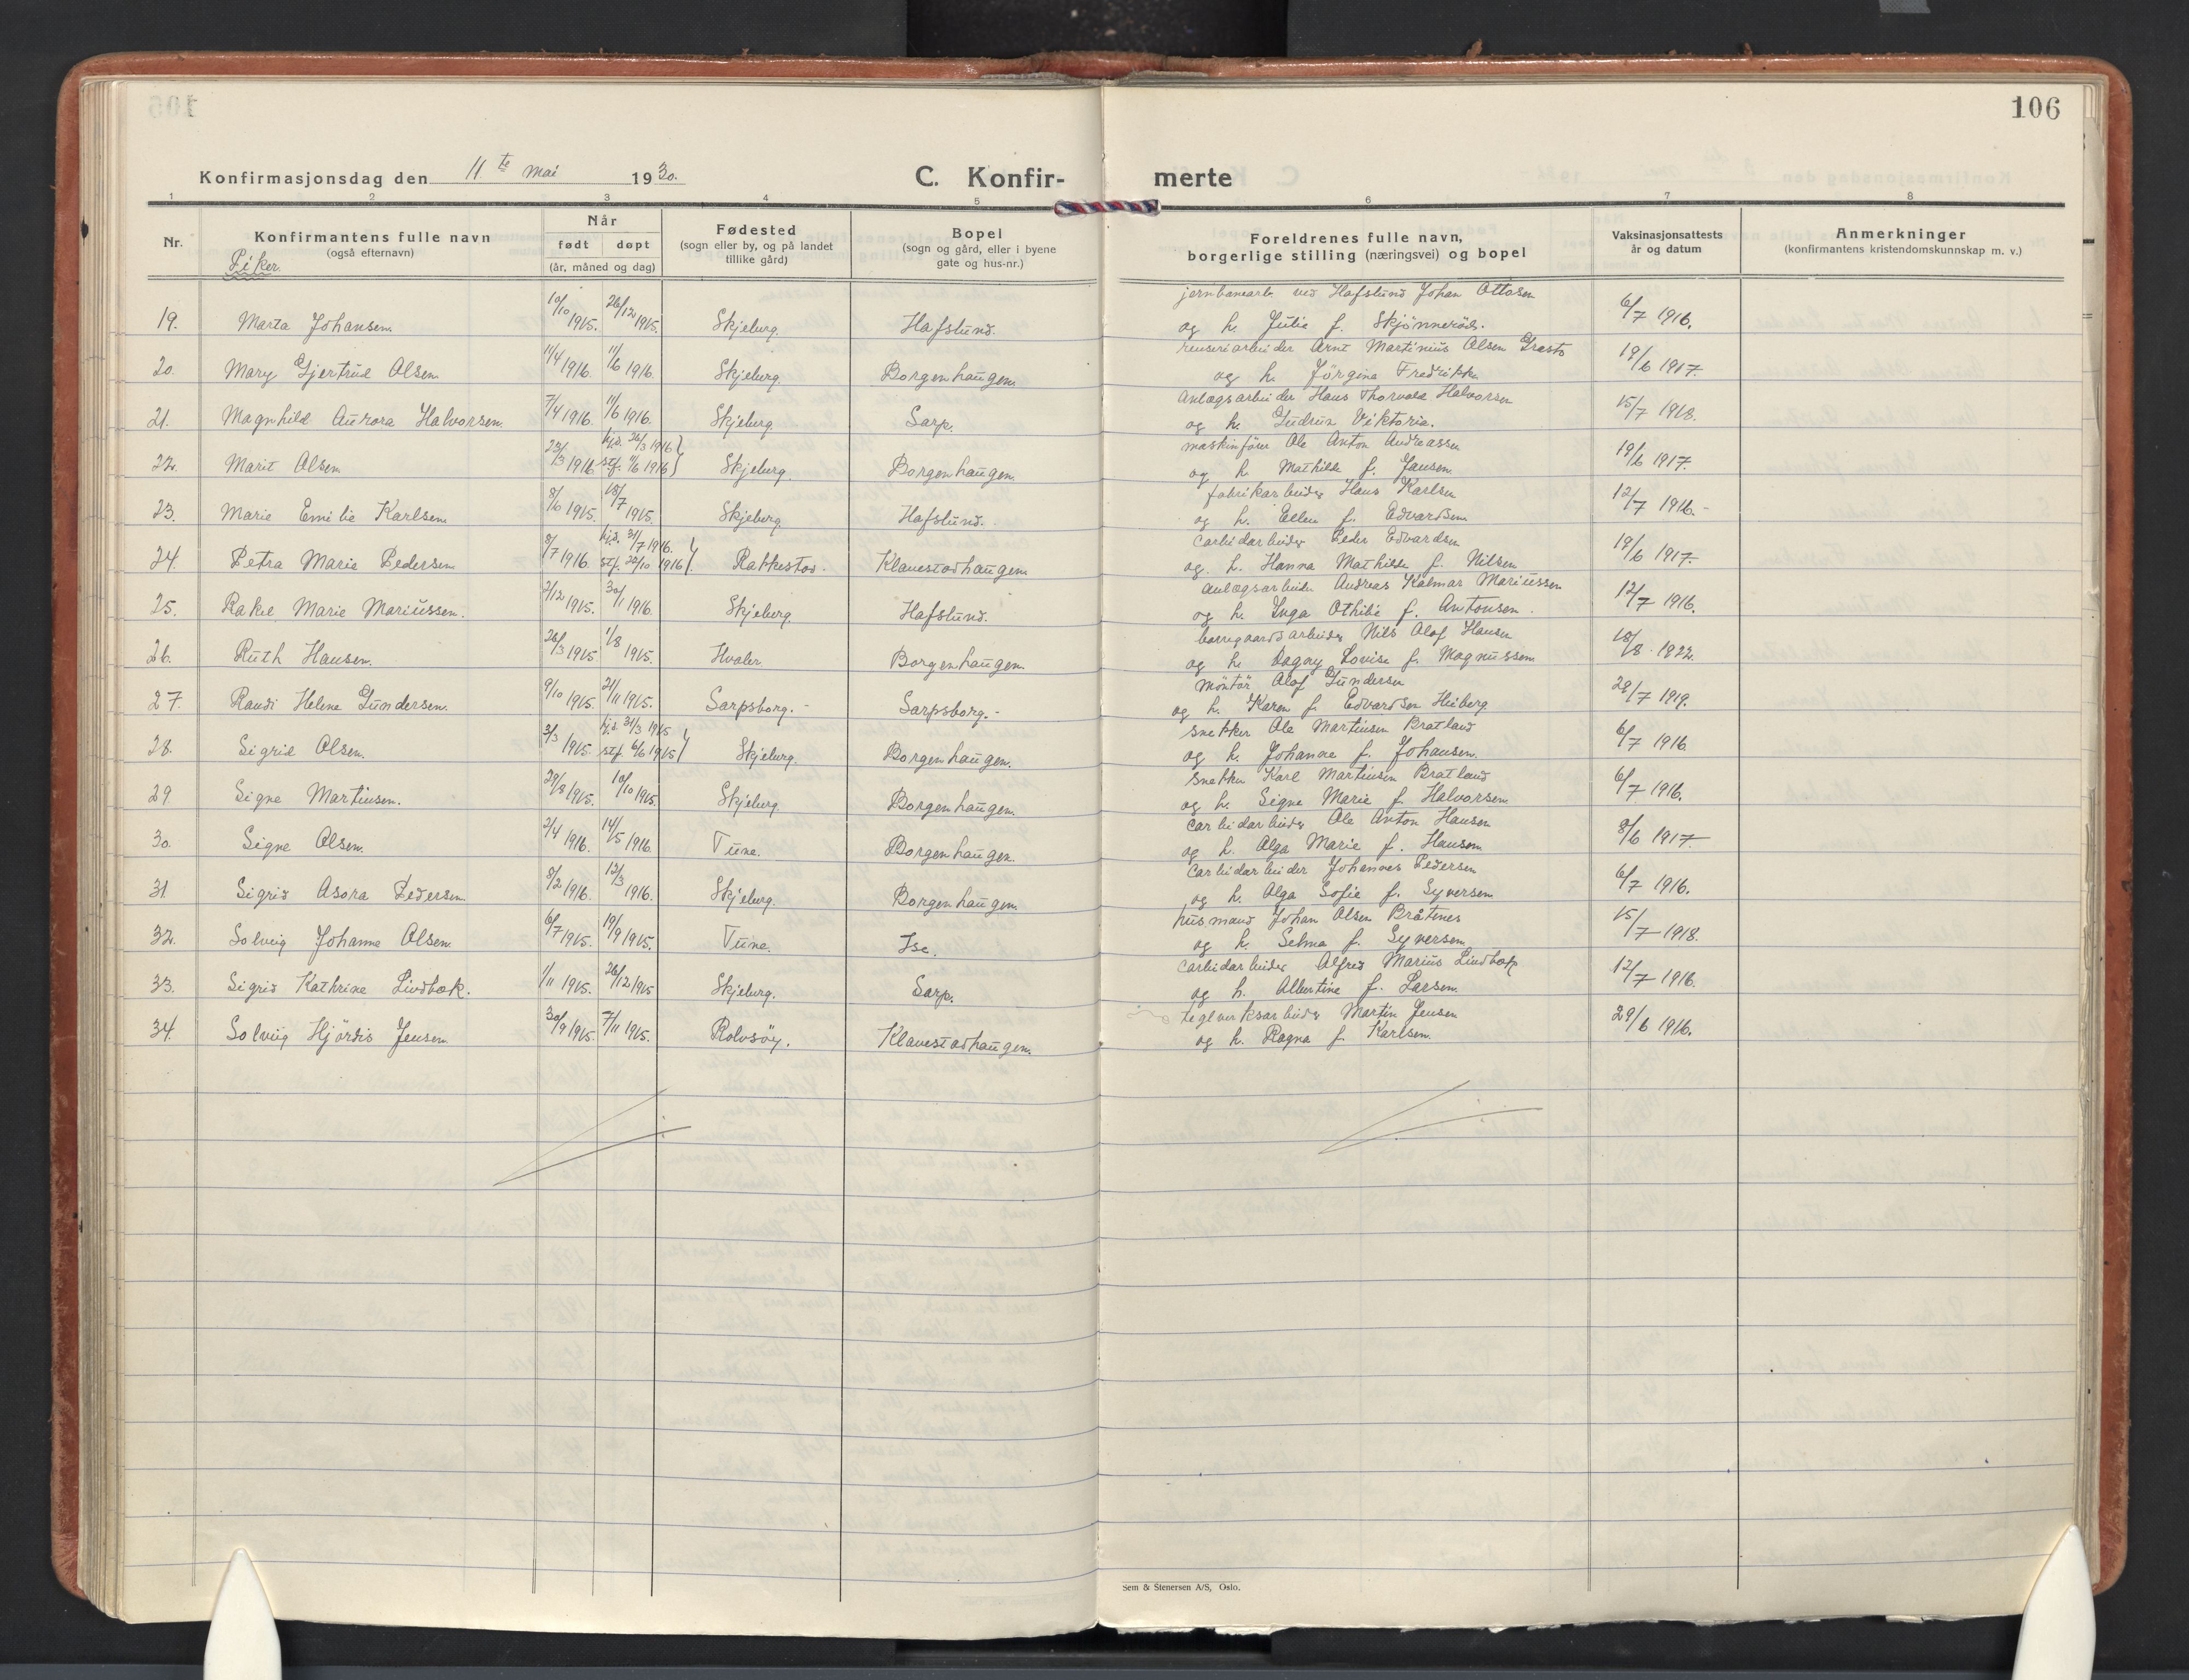 106
Konfirmasjonsdag den 11te mai 1930.
C. Konfir-
merte
1 2 3 4 5 6 7 8
Nr.
Konfirmantens fulle navn
(også efternavn)
Piker
Når
født døpt
(år, måned og dag)
Fødested
(sogn eller by, og på landet
tillike gård)
Bopel
(sogn og gård, eller i byene
gate og hus-nr.)
Foreldrenes fulle navn,
borgerlige stilling (næringsvei) og bopel
Vaksinasjonsattests
år og datum
Anmerkninger
(konfirmantens kristendomskunnskap m. v.)
jernbanearb. ved Hafslund Johan Ottosen
19. Marta Johansen. 10/10 1915. 26/12 1915. Skjeberg. Hafslund. og h. Julie f. Skjønnerød. 6/7 1916.
renseriarbeider Arnt Martinius Olsen Græsto
20. Mary Gjertrud Olsen 11/4 1916. 11/6 1916. Skjeberg. Borgenhaugen. og h. Jörgine Fredrikke 19/6 1917.
Anlægsarbeider Hans Thorvald Halvorsen
21. Magnhild Aurora Halvorsen. 7/4 1916. 11/6 1916. Skjeberg Sarp. og h. Gudrun Viktoria. 15/7 1918.
maskinfører Ole Anton Andreassen
22. Marit Olsen 23/3 1916 hjd. 26/3 1916 stf. 11/6 1916 Skjeberg. Borgenhaugen. og h. Mathilde f. Jansen. 19/6 1917.
fabrikarbeider Hans Karlsen
23. Marie Emilie Karlsen 8/6 1915. 18/7 1915. Skjeberg Hafslund. og h. Ellen f. Edvardsen. 12/7 1916.-
Carbidarbeider Peder Edvardsen
24. Petra Marie Pedersen 8/7 1916. hjd. 31/7 1916. stf. 22/10 1916. Rakkestad. Klavestadhaugen. og. h. Hanna Mathilde f. Nilsen 19/6 1917.
anlægsarbeider Andreas Kalmar Mariussen
25. Rakel Marie Mariussen. 2/12 1915. 30/1 1916. Skjeberg. Hafslund. og h. Inga Othilie f. Antonsen. 12/7 1916.
borregaardsarbeider Nils Olaf Hansen
26. Ruth Hansen. 26/3 1915. 1/8 1915. Hvaler. Borgenhaugen. og h. Dagny Lovise f. Magnussen. 18/8. 1922.
Möntör Olaf Gundersen
27. Randi Helene Gundersen. 9/10 1915. 21/11 1915. Sarpsborg.- Sarpsborg.- og h. Karen f. Edvardsen Heiberg. 28/7 1919.
snekker Ole Martinsen Bratland
28. Sigrid Olsen. 3/3 1915. hjd. 31/3 1915 stf. 6/6 1915 Skjeberg. Borgenhaugen. og h. Johanne f. Johansen. 6/7 1916
snekker Karl Martinsen Bratland
29. Signe Martinsen. 29/8 1915. 10/10 1915. Skjeberg Borgenhaugen. og h. Signe Marie f. Halvorsen 6/7 1916.
Carbidarbeider Ole Anton Hansen
30. Signe Olsen. 2/4 1916. 14/5 1916. Tune. Borgenhaugen. og h. Olga Marie f. Hansen. 8/6 1917
Carbidarbeider Johannes Pedersen
31. Sigrid Asora Pedersen. 8/2 1916. 12/3 1916. Skjeberg. Borgenhaugen. og h. Olga Sofie f. Syversen 6/7 1916.
husmand Johan Olsen Bråtenes
32. Solveig Johanne Olsen 6/7 1915. 19/9 1915. Tune. Ise. og h. Selma f. Syversen 15/7 1918.
Carbidarbeider Alfred Marius Lindbæk
33. Sigrid Kathrine Lindbæk. 1/11 1915. 26/12 1915 Skjeberg. Sarp. og h. Albertine f. Larsen. 12/7 1916.
teglverksarbeider Martin Jensen
34. Solveig Hjördis Jensen 30/9 1915. 7/11 1915. Rolvsöy. Klavestadhaugen. og h. Ragna f. Karlsen. 29/6 1916.
Sem & Stenersen A/S, Oslo.